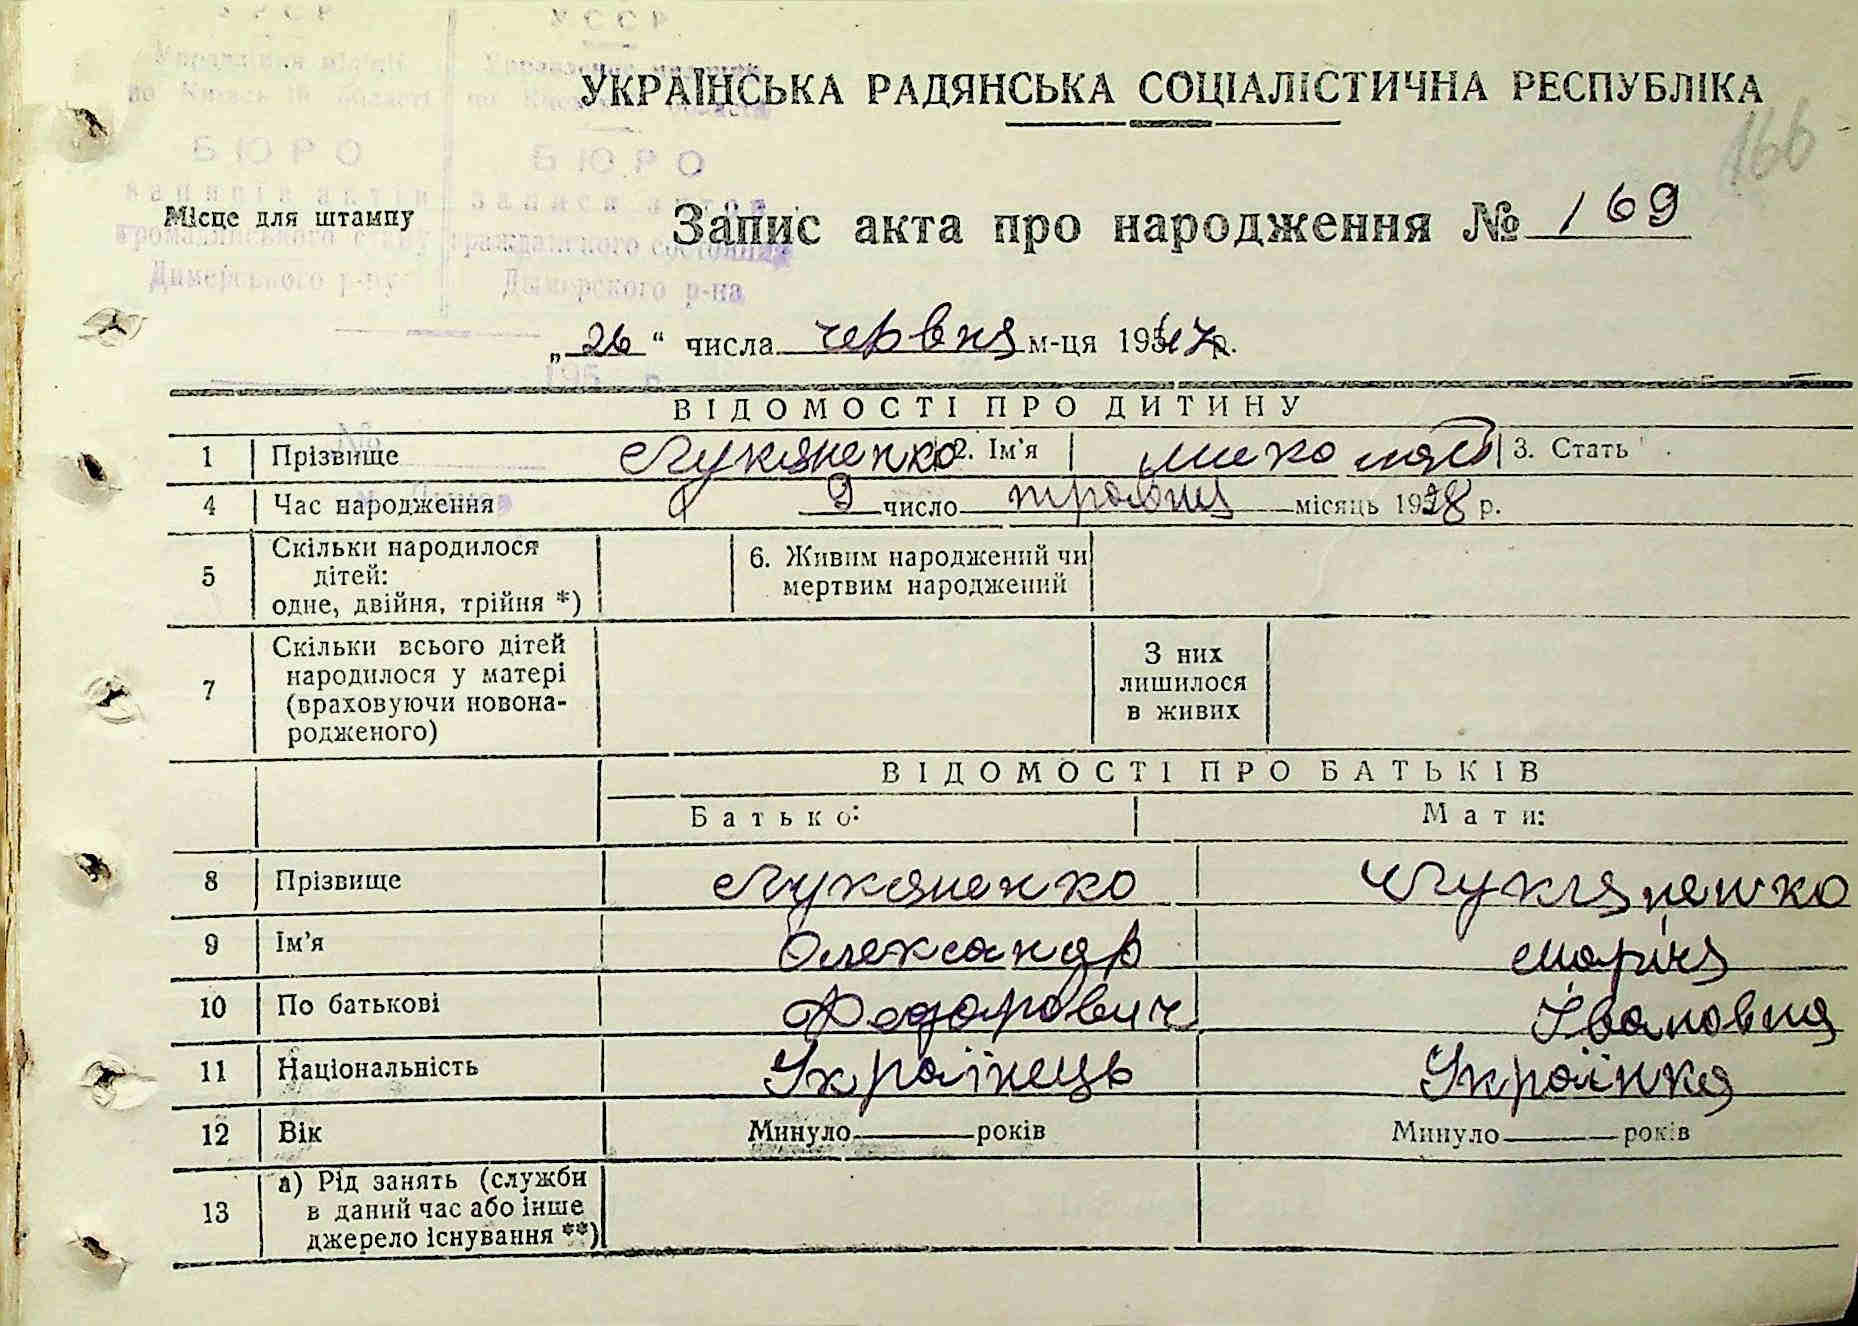 УКРАЇНСЬКА РАДЯНСЬКА СОЦІАЛІСТИЧНА РЕСПУБЛІКА
166
УССР
Управление милиции
по Киевской области
БЮРО БЮРО
записів актів записи актов
громадянського стану гражданского состояния
Димерського р-ну Дымерского р-на
195 р.
№
Місце для штампу
Запис акта про народження № 169
„26“ числа червня м-ця 1947р.
ВІДОМОСТІ ПРО ДИТИНУ
1 Прізвище Лукяненко 2. Ім'я Миколай 3. Стать
4 Час народження 9 число травня місяць 1928 р.
5 Скільки народилося дітей: одне, двійня, трійня *) 6. Живим народжений чи мертвим народжений
7 Скільки всього дітей народилося у матері (враховуючи новонародженого) З них лишилося в живих
ВІДОМОСТІ ПРО БАТЬКІВ
Батько: Мати:
8 Прізвище Лукяненко Лукяненко
9 Ім'я Олександр Марія
10 По батькові Федорович Івановна
11 Національність Українець Українка
12 Вік Минуло років Минуло років
13 а) Рід занять (служби в даний час або інше джерело існування **)